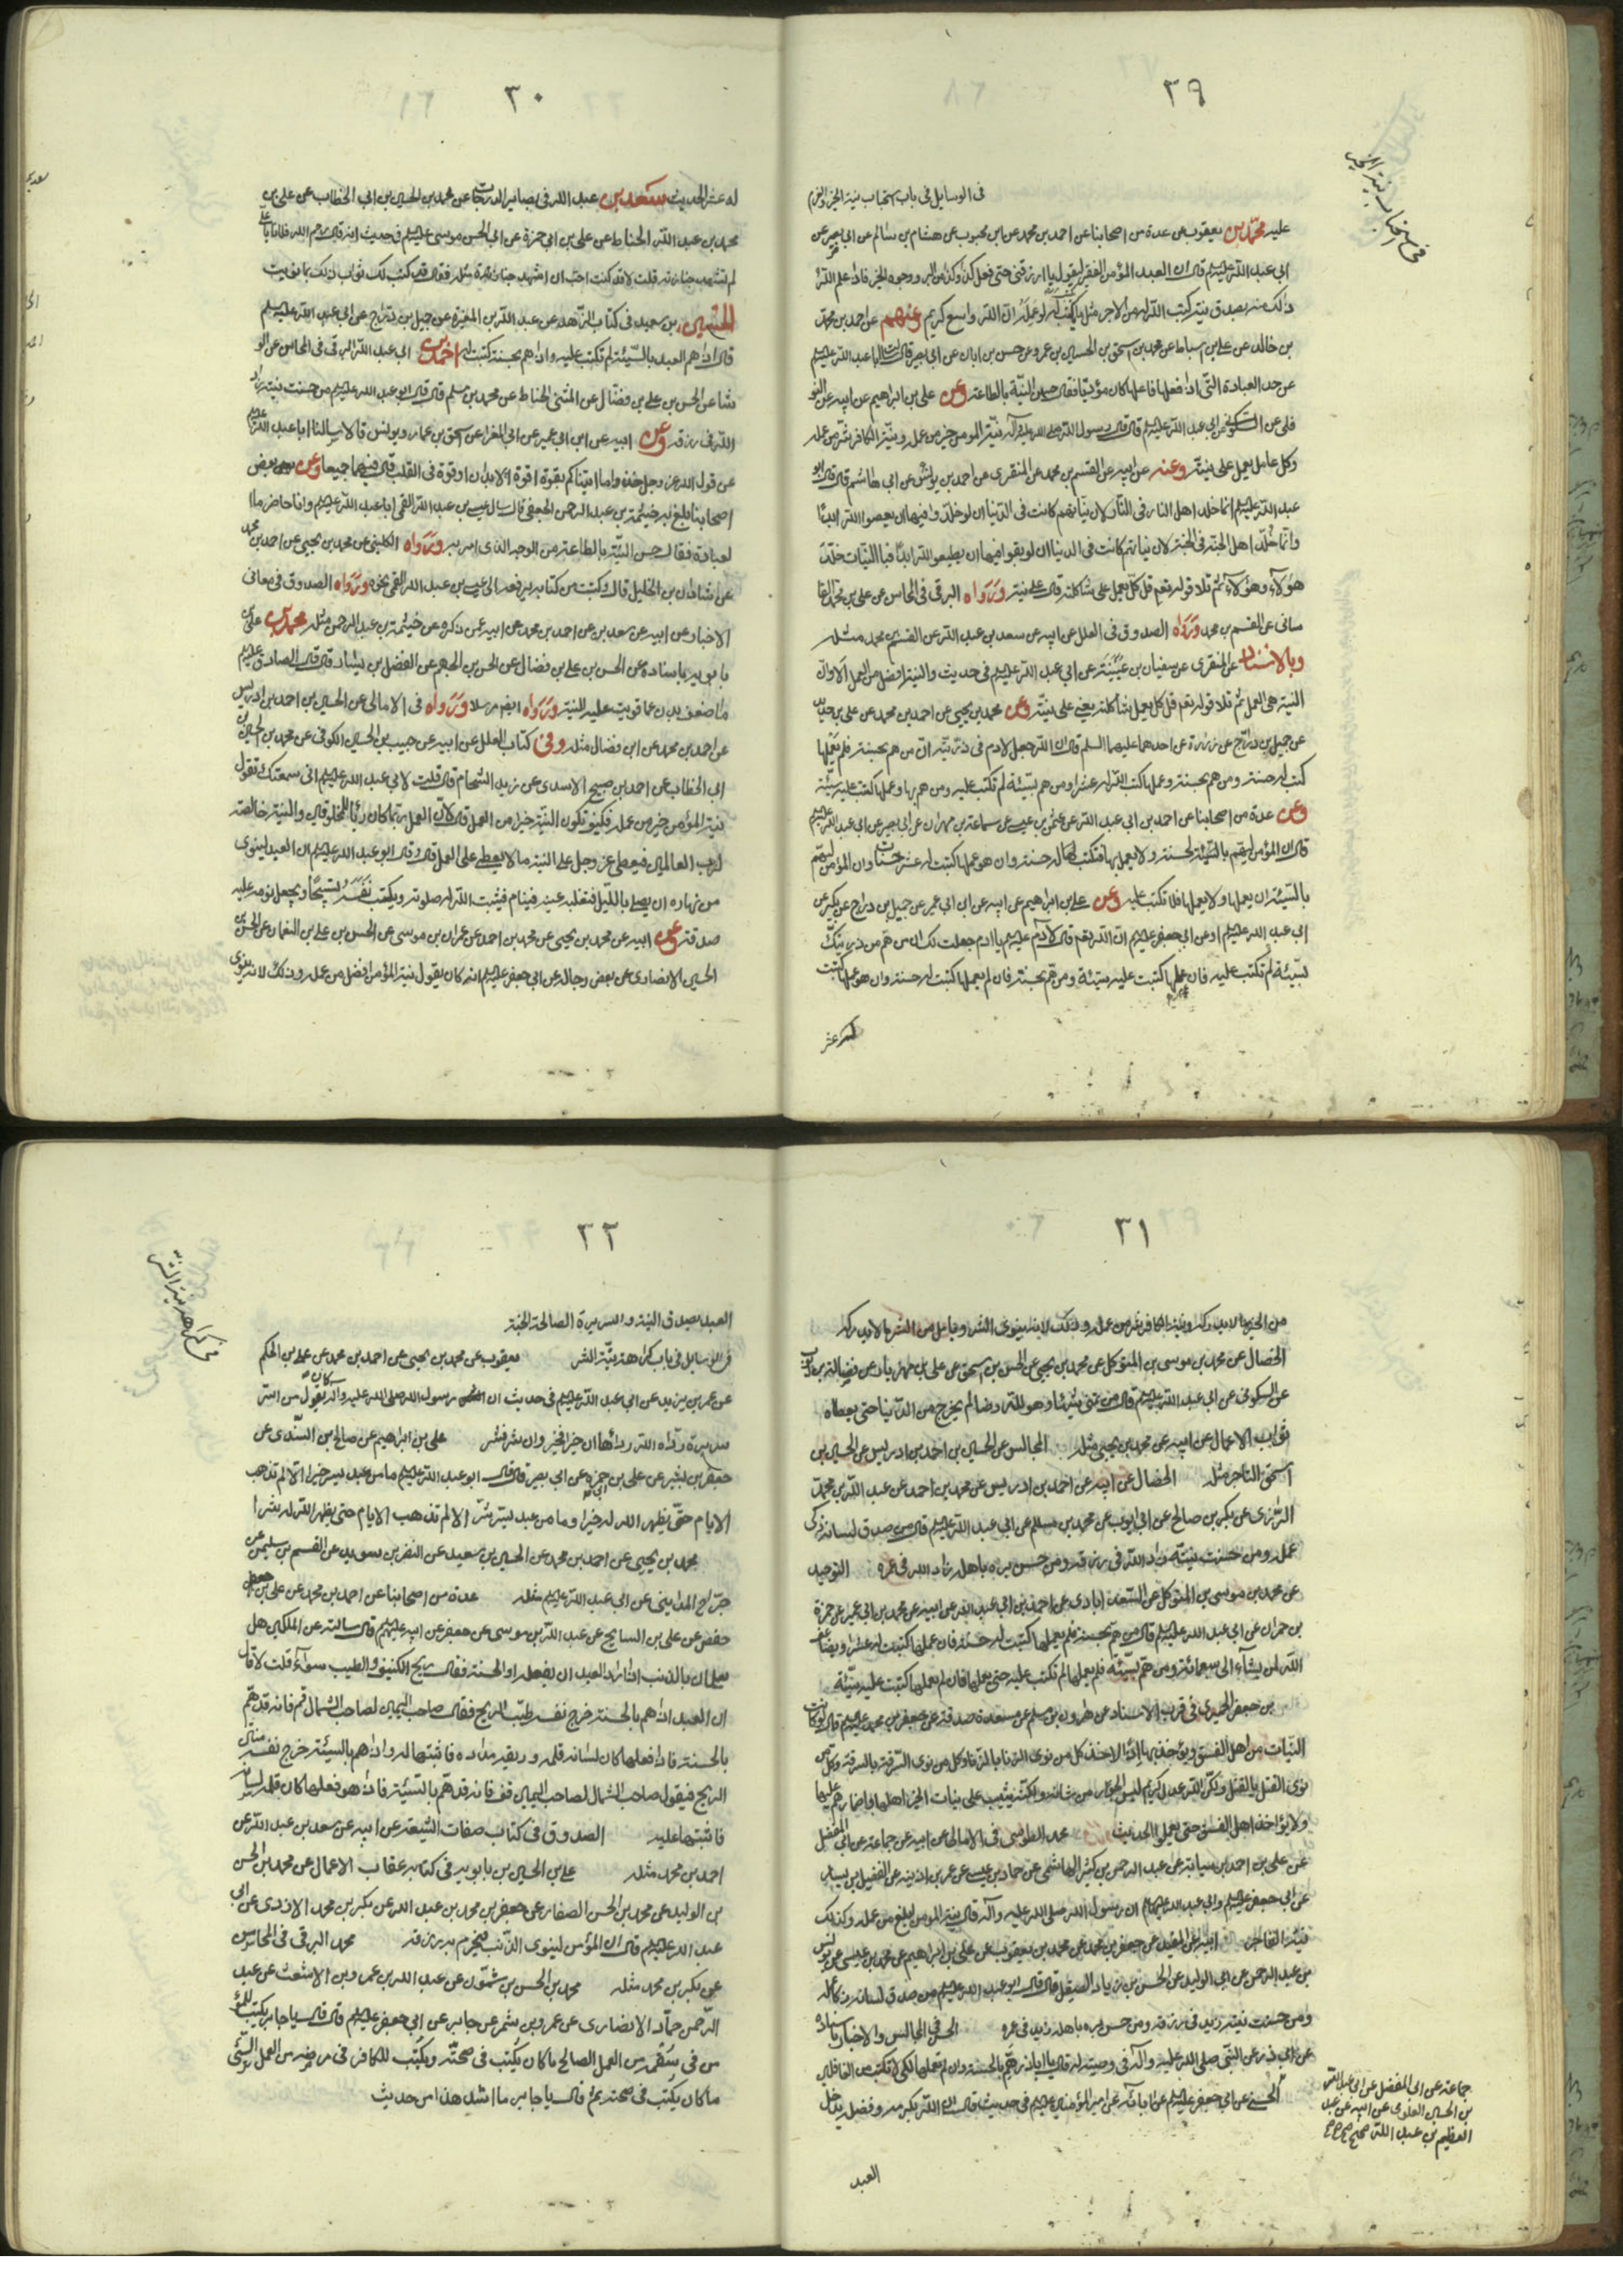 ٢٩
في استحباب نية الخير
في الوسايل في باب استحباب نية الخير والعزم
عليه محمد بن يعقوب عن عدة من اصحابنا عن احمد بن محمد عن ابن محبوب عن هشام بن سالم عن ابي بصير عن
ابي عبد الله عليه السلم قال ان العبد المؤمن الفقير ليقول يا رب ارزقني حتى افعل كذا وكذا من البر ووجوه الخير فاذا علم الله
ذلك منه بصدق نية كتب الله له من الاجر مثل ما يكتب له لو عمله ان الله واسع كريم وعنهم عن احمد بن محمد
بن خالد عن علي بن اسباط عن محمد بن اسحق بن الحسين بن عمرو عن حسن بن ابان عن ابي بصير قال سالت ابا عبد الله عليه السلم
عن حد العبادة التي اذا فعلها فاعلها كان مؤديا فقال حسن النية بالطاعة وعن علي بن ابراهيم عن ابيه عن النو
فلي عن السكوني عن ابي عبد الله عليه السلم قال قال رسول الله صلى الله عليه وآله نية المومن خير من عمله ونية الكافر شر من عمله
وكل عامل يعمل على نيته وعنه عن ابيه عن القسم بن محمد عن المنقري عن احمد بن يونس عن ابي هاشم قال قال ابو
عبد الله عليه السلم انما خلد اهل النار في النار لان نياتهم كانت في الدنيا ان لو خلدوا فيها ان يعصوا الله ابدا
وانما خلد اهل الجنة في الجنة لان نياتهم كانت في الدنيا ان لو بقوا فيها ان يطيعوا الله ابدا فبالنيات خلد
هؤلاء وهؤلاء ثم تلا قوله تعم قل كل يعمل على شاكلته قال على نيته ورواه البرقي في المحاسن عن علي بن محمد القا
ساني عن القسم بن محمد ورواه الصدوق في العلل عن ابيه عن سعد بن عبد الله عن القسم بن محمد مثله
وبالاسناد عن المنقري عن سفيان بن عيينة عن ابي عبد الله عليه السلم في حديث والنية افضل من العمل الا وان
النية هي العمل ثم تلا قوله تعم قل كل يعمل على شاكلته يعني على نيته وعن محمد بن يحيى عن احمد بن محمد عن علي بن حديد
عن جميل بن دراج عن زرارة عن احدهما عليهما السلم قال ان الله جعل لادم في ذريته ان من هم بحسنة فلم يعملها
كتب له حسنة ومن هم بحسنة وعملها كتب الله له عشرا ومن هم بسيئة لم تكتب عليه ومن هم بها وعملها كتبت عليه سيئة
وعن عدة من اصحابنا عن احمد بن ابي عبد الله عن عثمن بن عيسى عن سماعة بن مهران عن ابي بصير عن ابي عبد الله عليه السلم
قال ان المؤمن ليهم بالحسنة ولا يعمل بها فتكتب له حسنة وان هو عملها كتبت له عشر حسنات وان المؤمن ليهم
بالسيئة ان يعملها ولا يعملها فلا تكتب عليه وعن علي بن ابراهيم عن ابيه عن ابن ابي عمير عن جميل بن دراج عن بكير عن
ابي عبد الله عليه السلم او عن ابي جعفر عليه السلم ان الله تعم قال لآدم عليه السلم يا ادم جعلت لك ان من هم من ذريتك
بسيئة لم تكتب عليه فان عملها كتبت عليه سيئة ومن هم بحسنة فان لم يعملها كتبت له حسنة وان هو عملها كتبت
له عشر
٣٠
له عشر الحديث سعد بن عبد الله في بصاير الدرجات عن محمد بن الحسين بن ابي الخطاب عن علي بن
محمد بن عبد الله الحناط عن علي بن ابي حمزة عن ابي الحسن موسى عليه السلم في حديث انه قال رحم الله فلانا يا علي
لم تشهد جنازته قلت لا قد كنت احب ان اشهد جنازة مثله فقال قد كتب لك ثواب ذلك بما نويت
الحسين بن سعيد في كتاب الزهد عن عبد الله بن المغيرة عن جميل بن دراج عن ابي عبد الله عليه السلم
قال اذا هم العبد بالسيئة لم تكتب عليه واذا هم بحسنة كتبت له احمد بن ابي عبد الله البرقي في المحاسن عن الو
شا عن الحسن بن علي بن فضال عن المثنى الحناط عن محمد بن مسلم قال قال ابو عبد الله عليه السلم من حسنت نيته زاد
الله في رزقه وعن ابيه عن ابن ابي عمير عن ابي المغرا عن اسحق بن عمار ويونس قالا سالنا ابا عبد الله عليه السلم
عن قول الله عز وجل خذوا ما اتيناكم بقوة اقوة الابدان او قوة في القلب قال فيهما جميعا وعن بعض
اصحابنا بلغ به خيثمة بن عبد الرحمن الجعفي قال سال عيسى بن عبد الله القمي ابا عبد الله عليه السلم وانا حاضر ما ا
لعبادة فقال حسن النية بالطاعة من الوجه الذي امر به ورواه الكليني عن محمد بن يحيى عن احمد بن محمد
عن شاذان بن الخليل قال وكتبت من كتابه يرفعه الى عيسى بن عبد الله القمي نحوه ورواه الصدوق في معاني
الاخبار عن ابيه عن سعد بن عن احمد بن محمد عن ابيه عمن ذكره عن خيثمة بن عبد الرحمن مثله محمد بن علي
بابويه باسناده عن الحسن بن علي بن فضال عن الحسن بن الجهم عن الفضل بن يسار قال قال الصادق عليه السلم
ما ضعف بدن عما قويت عليه النية ورواه ايضا مرسلا ورواه في الامالي عن الحسين بن احمد بن ادريس
عن احمد بن محمد عن ابن فضال مثله وفي كتاب العلل عن ابيه عن حبيب بن الحسين الكوفي عن محمد بن الحسين
ابي الخطاب عن احمد بن صبيح الاسدي عن زيد الشحام قال قلت لابي عبد الله عليه السلم اني سمعتك تقول
نية المؤمن خير من عمله فكيف تكون النية خيرا من العمل قال لان العمل ربما كان رياء للمخلوقين والنية خالصة
لرب العالمين فيعطي عز وجل على النية ما لا يعطي على العمل قال وقال ابو عبد الله عليه السلم ان العبد لينوي
من نهاره ان يصلي بالليل فتغلبه عينه فينام فيثبت الله له صلوته ويكتب نفسه تسبيحا ويجعل نومه عليه
صدقة وعن ابيه عن محمد بن يحيى عن محمد بن احمد عن عمران بن موسى عن الحسن بن علي بن النعمان عن الحسن بن
الحسين الانصاري عن بعض رجاله عن ابي جعفر عليه السلم انه كان يقول نية المؤمن افضل من عمله وذلك لانه ينوي
٣١
من الخير ما لا يدركه ونية الكافر شر من عمله وذلك لانه ينوي الشر ويامل من الشر ما لا يدركه
الخصال عن محمد بن موسى بن المتوكل عن محمد بن يحيى عن الحسن بن اسحق عن علي بن مهزيار عن فضالة بن ايوب
عن السكوني عن ابي عبد الله عليه السلم قال من تمنى شيئا وهو لله رضا لم يخرج من الدنيا حتى يعطاه
ثواب الاعمال عن ابيه عن محمد بن يحيى مثله المجالس عن الحسين بن احمد بن ادريس عن الحسين بن
اسحق التاجر مثله الخصال عن ابيه عن احمد بن ادريس عن محمد بن احمد عن عبد الله بن محمد
الرازي عن بكر بن صالح عن ابي ايوب عن محمد بن مسلم عن ابي عبد الله عليه السلم قال من صدق لسانه زكى
عمله ومن حسنت نيته زاد الله في رزقه ومن حسن بره باهله زاد الله في عمره التوحيد
عن محمد بن موسى بن المتوكل عن السعد ابادي عن احمد بن ابي عبد الله عن ابيه عن محمد بن ابي عمير عن حمزة
بن حمران عن ابي عبد الله عليه السلم قال من هم بحسنة فلم يعملها كتبت له حسنة فان عملها كتبت له عشرا ويضاعف
الله لمن يشآء الى سبعمائة ومن هم بسيئة فلم يعملها لم تكتب عليه حتى يعملها فان لم يعملها كتبت عليه سيئة
بن جعفر الحميري في قرب الاسناد عن هرون بن مسلم عن مسعدة صدقة عن جعفر بن محمد عليه السلم قال لو كانت
النيات من اهل الفسق ويؤخذ بها اهلها اذا لاخذ كل من نوى الزنا بالزنا وكل من نوى السرقة بالسرقة وكل من
نوى القتل بالقتل ولكن الله عدل كريم ليس الجور من شانه ولكنه يثيب على نيات الخير اهلها واضمارهم عليها
ولا يؤاخذ اهل الفسق حتى يعملوا الحديث محمد الطوسي في الامالي عن ابيه عن جماعة عن ابي المفضل
عن علي بن احمد بن سيابة عن عبد الرحمن بن كثير الهاشمي عن حماد بن عيسى عن عمر بن اذينة عن الفضيل بن يسار
عن ابي جعفر عليه السلم وابي عبد الله عليهما ان رسول الله صلى الله عليه وآله قال نية المومن ابلغ من عمله وكذلك
نية الفاجر ابيه عن المفيد عن جعفر بن محمد عن محمد بن يعقوب عن علي بن ابراهيم عن محمد بن عيسى عن يونس
بن عبد الرحمن عن ابي الوليد عن الحسن بن زياد الصيقل قال قال ابو عبد الله عليه السلم من صدق لسانه زكا عمله
ومن حسنت نيته زيد في رزقه ومن حسن بره باهله زيد في عمره الحسن في المجالس والاخبار باسناده
عن ابي ذر عن النبي صلى الله عليه وآله في وصيته له قال يا اباذر هم بالحسنة وان لم تعملها لكي لا تكتب من الغافلين
الحسني عن ابي جعفر عليه السلم عن ابائه عن امير المؤمنين عليه السلم في حديث قال ان الله بكرمه وفضله يدخل
جماعة عن ابي المفضل عن ابي عبد الله
بن الحسين العلوي عن ابيه عن عبد
العظيم بن عبد الله صحيح صح صح
العبد
٣٢
في كراهة نية الشر
العبد بصدق النية والسريرة الصالحة الجنة
في الوسايل في باب كراهة نية الشر يعقوب عن محمد بن يحيى عن احمد بن محمد عن علي بن الحكم
عن عمر بن يزيد عن ابي عبد الله عليه السلم في حديث ان رسول الله صلى الله عليه وآله كان يقول من اسر
سريرة رداه الله ردائها ان خيرا فخير وان شرا فشر علي بن ابراهيم عن صالح بن السندي عن
جعفر بن بشير عن علي بن ابي حمزة عن ابي بصير قال قال ابو عبد الله عليه السلم ما من عبد يسر خيرا الا لم تذهب
الايام حتى يظهر الله له خيرا وما من عبد يسر شرا الا لم تذهب الايام حتى يظهر الله له شرا
محمد بن يحيى عن احمد بن محمد عن الحسين بن سعيد عن النضر بن سويد عن القسم بن سليمن عن
جراح المدايني عن ابي عبد الله عليه السلم مثله عدة من اصحابنا عن احمد بن محمد عن علي بن
حفص عن علي بن السايح عن عبد الله بن موسى عن جعفر عن ابيه عليهم قال سالته عن الملكين هل
يعلمان بالذنب اذا اراد العبد ان يفعله او الحسنة فقال ريح الكنيف والطيب سوآء قلت لا قال
ان العبد اذا هم بالحسنة خرج نفسه طيب الريح فقال صاحب اليمين لصاحب الشمال قم فانه قد هم
بالحسنة فاذا فعلها كان لسانه قلمه وريقه مداده فاثبتها له واذا هم بالسيئة خرج نفسه منتن
الريح فيقول صاحب الشمال لصاحب اليمين قف فانه قد هم بالسيئة فاذا هو فعلها كان قلمه لسانه
فاثبتها عليه الصدوق في كتاب صفات الشيعة عن ابيه عن سعد بن عبد الله عن
احمد بن محمد مثله علي بن الحسين بن بابويه في كتابه عقاب الاعمال عن محمد بن الحسن
بن الوليد عن محمد بن الحسن الصفار عن جعفر بن محمد بن عبد الله عن بكر بن محمد الازدي عن ابي
عبد الله عليه السلم قال ان المؤمن لينوي الذنب فيحرم به رزقه محمد البرقي في المحاسن
عن بكر بن محمد مثله محمد بن الحسن بن شمون عن عبد الله بن عمرو بن الاشعث عن عبد
الرحمن حماد الانصاري عن عمرو بن شمر عن جابر عن ابي جعفر عليه السلم قال قال يا جابر يكتب للمؤ
من في سقمه من العمل الصالح ما كان يكتب في صحته ويكتب للكافر في مرضه من العمل السئ
ما كان يكتب في صحته ثم قال يا جابر ما اشد هذا من حديث